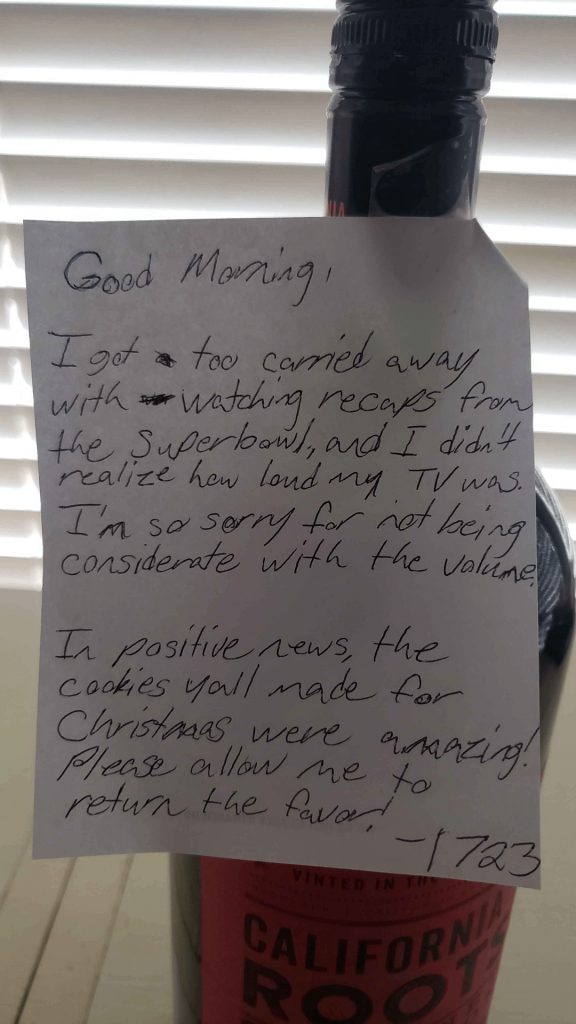 Good Morning,
I got too carried away
with watching recaps from
the Superbowl, and I didn't
realize how loud my TV was.
I'm so sorry for not being
considerate with the volume.
In positive news, the
cookies yall made for
Christmas were amaazing!
Please allow me to
return the favor!
-1723
VINTED IN THE
CALIFORNIA
ROOTS